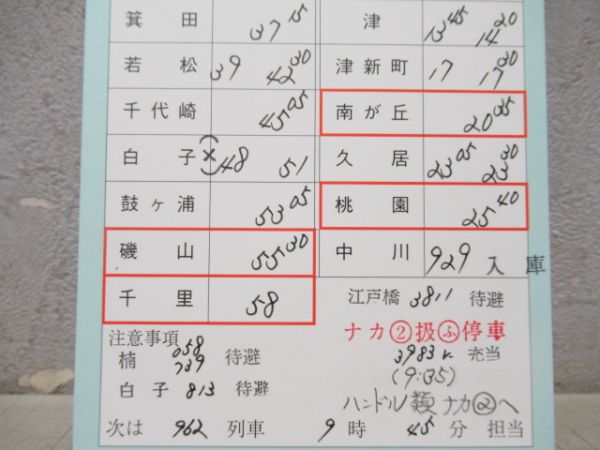 箕田 37 15
若松 39 42 30
千代崎 45 05
白子 (×) 48 51
鼓ヶ浦 53 05
磯山 55 30
千里 58
津 13 45 14 20
津新町 17 17 30
南が丘 20 35
久居 23 05 23 30
桃園 25 40
中川 929 入庫
注意事項
楠 058 739 待避
白子 813 待避
次は 962 列車 9時 45分 担当
江戸橋 3811 待避
ナカ②扱ふ停車
3983レ 充当
(9:35)
ハンドル ナカ②へ